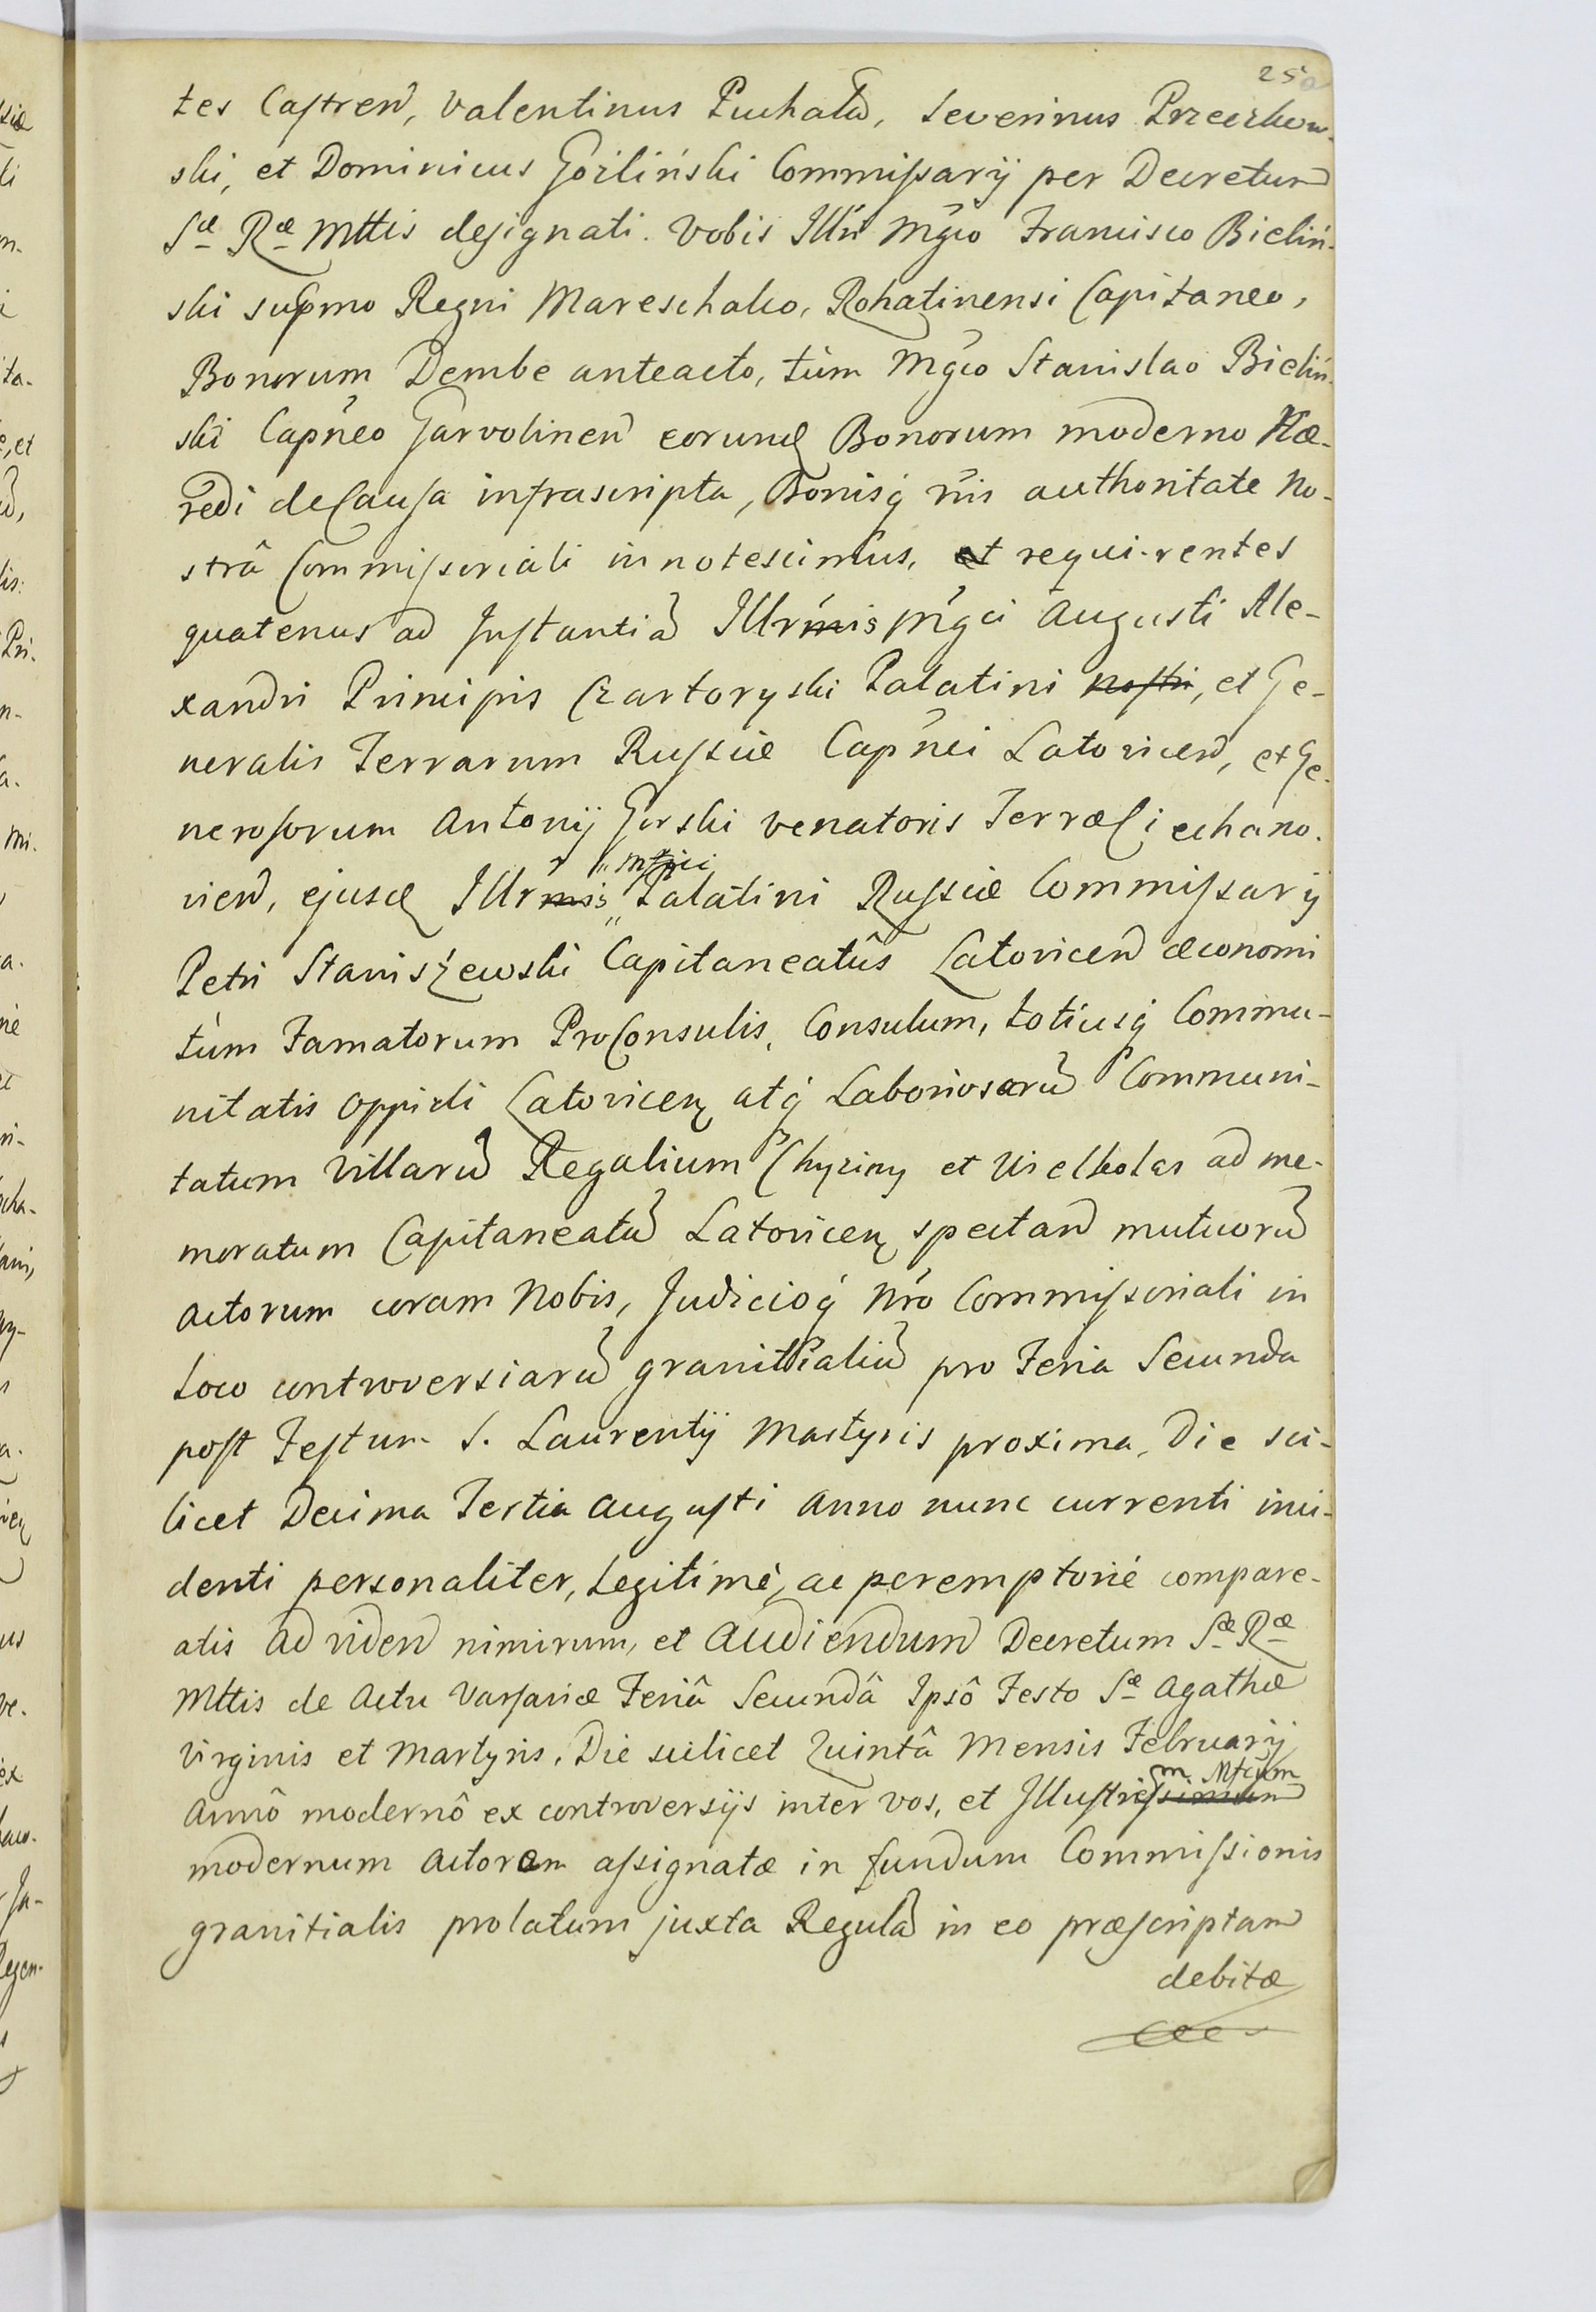 25
tes Castren, Valentinus Puchała, Severinus Przeczkow-
ski, et Dominicus Gozliński Commissarij per Decretum
Sæ Ræ Mttis designati. Vobis Illri Mgco Francisco Bieliń-
ski supmo Regni Mareschalco, Rohatinensi Capitaneo,
Bonorum Dembe anteacto, tùm Mgco Stanislao Bieliń-
ski Capneo Garvolinen eorund Bonorum moderno Hæ-
redi de Causa infrascripta, Bonisq ris authoritate No-
strâ Commissoriali innotescimus, et requi-rentes
quatenus ad Instantiã Illrmis Mgci Augusti Ale-
xandri Principis Czartoryski Palatini nostri, et Ge-
neralis Terrarum Russiæ Capnei Latovicen, et Ge-
nerosorum Antonij Gorski Venatoris Terræ Ciechano-
vien, ejusd Illrmis Mgci Palatini Russiæ Commissarij
Petri Staniszewski Capitaneatûs Latovicen œconomi
tùm Famatorum ProConsulis, Consulum, totiusq Commu-
nitatis Oppidi Latovicen atq Laboriosarũ Communi-
tatum Villarũ Regalium Chyziny et Wielkolas ad me-
moratum Capitaneatũ Latovicen spectan mutuorũ
Actorum coram Nobis, Judicioq Nro Commissoriali in
Loco controversiarũ granitialiũ pro Feria Secunda
post Festum S. Laurentij Martyris proxima, Die sci-
licet Decima Tertia Augusti Anno nunc currenti inci-
denti personaliter, Legitimè, ac peremptoriè compare-
atis ad viden nimirum, et Audiendum Decretum Sæ Ræ
Mttis de Actu Varsaviæ Feriâ Secundâ Ipsô Festo Sæ Agathæ
Virginis et Martyris, Die scilicet Quintâ Mensis Februarij
Annô modernô ex controversijs inter vos, et Illustrissimum m Mgcum
modernum Actorem assignatæ in fundum Commissionis
granitialis prolatum juxta Regulã in eo præscriptam
debitæ